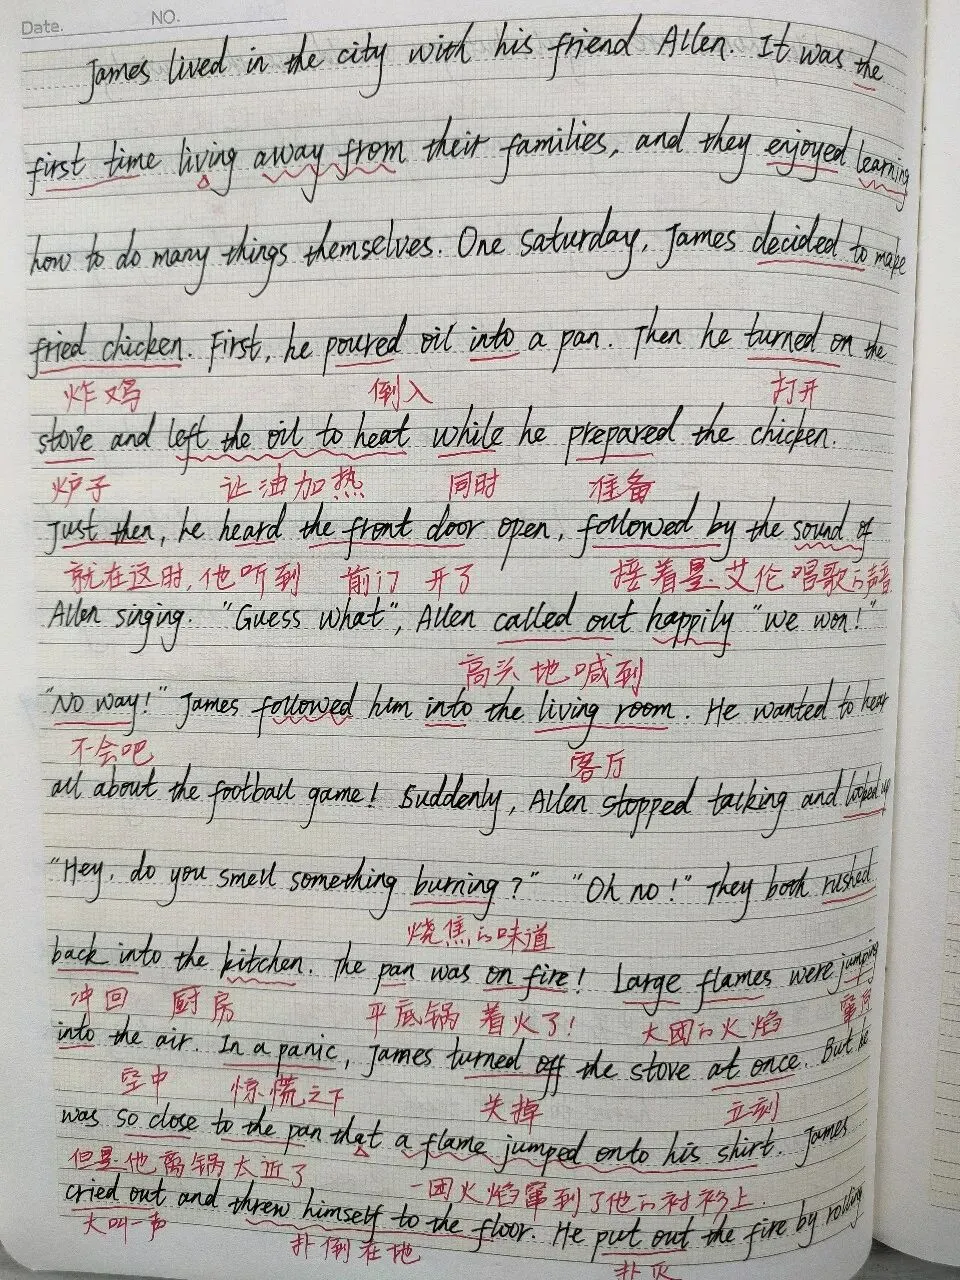 Date.
NO.
James lived in the city with his friend Allen. It was the
first time living away from their families, and they enjoyed learning
how to do many things themselves. One Saturday, James decided to make
fried chicken. First, he poured oil into a pan. Then he turned on the
炸鸡 倒入 打开
stove and left the oil to heat while he prepared the chicken.
炉子 让油加热 同时 准备
Just then, he heard the front door open, followed by the sound of
就在这时,他听到 前门 开了 接着是艾伦唱歌的声音
Allen singing. "Guess what", Allen called out happily "we won!"
高兴地喊到
"No way!" James followed him into the living room. He wanted to hear
不会吧 客厅
all about the football game! Suddenly, Allen stopped talking and looked up
"Hey, do you smell something burning?" "Oh no!" They both rushed
烧焦的味道
back into the kitchen. The pan was on fire! Large flames were jumping
冲回 厨房 平底锅 着火了! 大团的火焰 窜向
into the air. In a panic, James turned off the stove at once. But he
空中 惊慌之下 关掉 立刻
was so close to the pan that a flame jumped onto his shirt. James
但是他离锅太近了 一团火焰窜到了他的衬衫上.
cried out and threw himself to the floor. He put out the fire by rolling
大叫一声 扑倒在地 扑灭